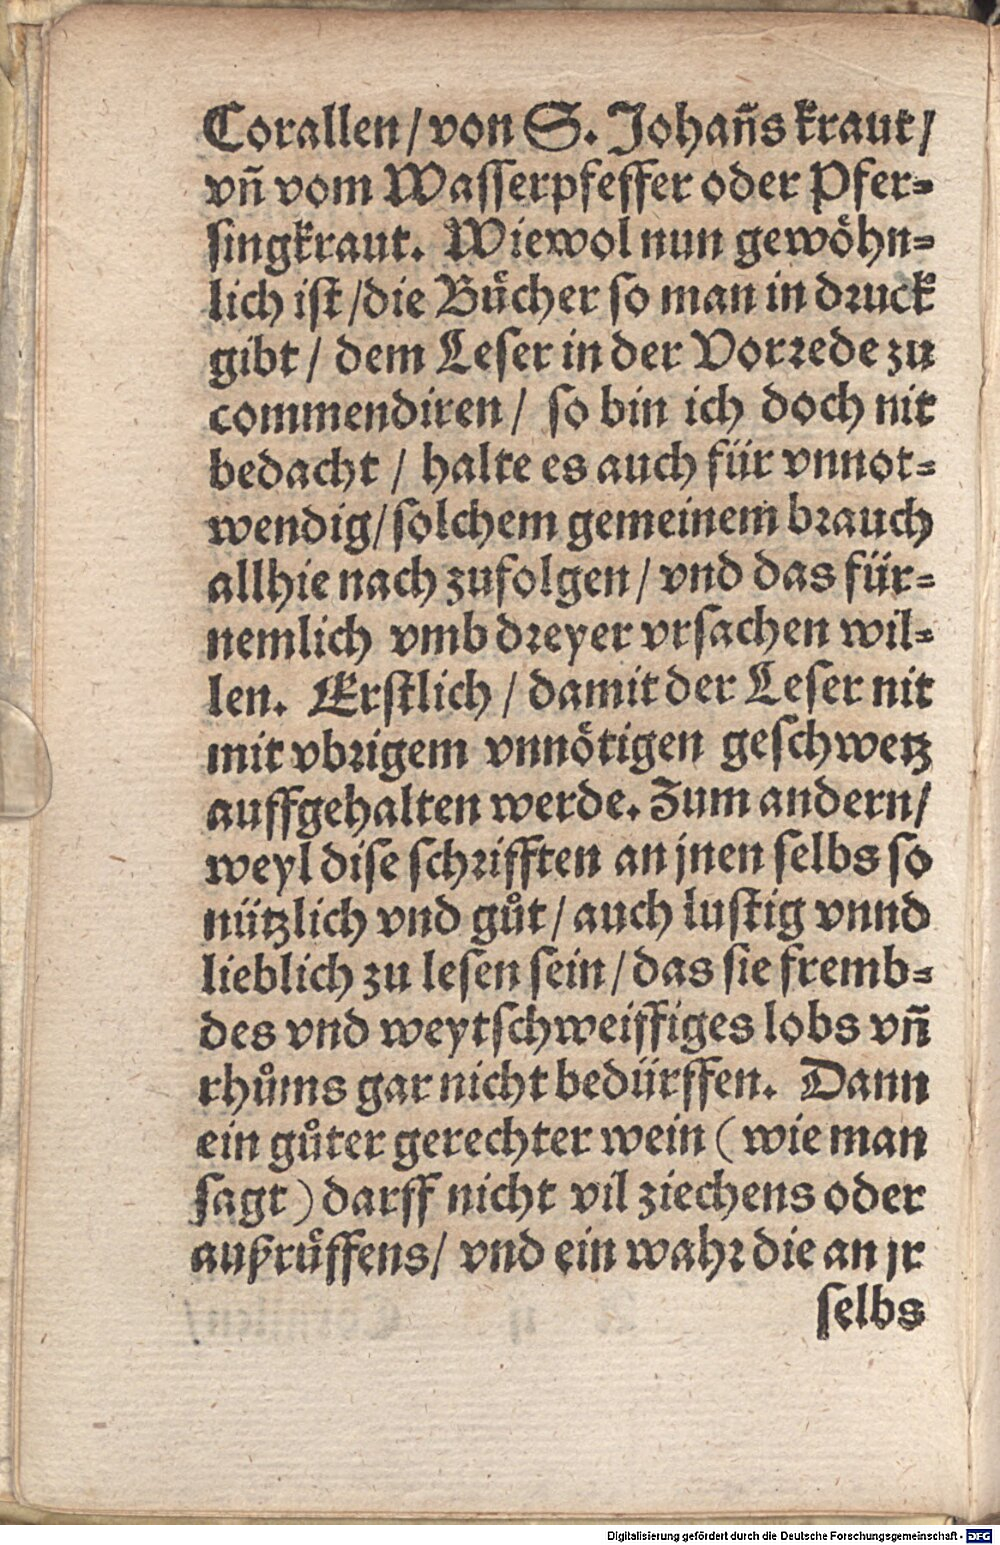 Corallen / von S. Johañs kraut /
vñ vom Wasserpfeffer oder Pfer⸗
singkraut. Wiewol nun gewöhn⸗
lich ist / die Bücher so man in druck
gibt / dem Leser in der Vorrede zu
commendiren / so bin ich doch nit
bedacht / halte es auch für vnnot⸗
wendig / solchem gemeinem brauch
allhie nach zufolgen / vnd das für⸗
nemlich vmb dreyer vrsachen wil⸗
len. Erstlich / damit der Leser nit
mit vbrigem vnnötigen geschwetz
auffgehalten werde. Zum andern /
weyl dise schrifften an jnen selbs so
nützlich vnd gůt / auch lustig vnnd
lieblich zu lesen sein / das sie fremb⸗
des vnd weytschweiffiges lobs vñ
rhůms gar nicht bedürffen. Dann
ein gůter gerechter wein ( wie man
sagt ) darff nicht vil ziechens oder
außrůffens / vnd ein wahr die an jr
selbs
Digitalisierung gefördert durch die Deutsche Forschungsgemeinschaft - DFG